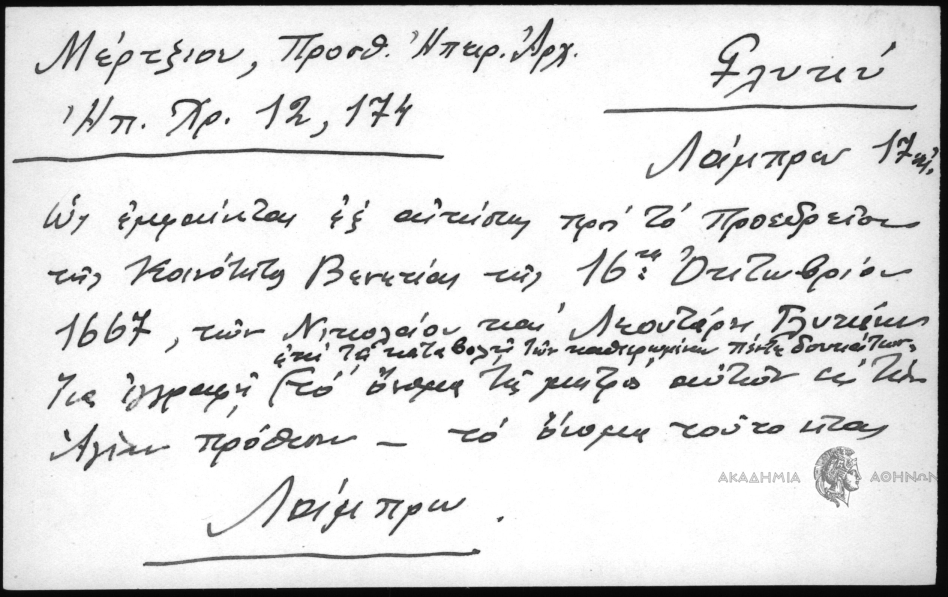 Μέρτζιου, Προσθ. Ἠπειρ. Ἀρχ.
Ἠπ. Χρ. 12, 174
Γλυκύ
Λάμπρω 17 αἰ.
Ὡς ἐμφαίνεται ἐξ αἰτήσεως πρός τό Προεδρεῖον
τῆς Κοινότητος Βενετίας τῆς 16ης Ὀκτωβρίου
1667, τῶν Νικολάου καί Λεοντάρη Γλυκέων
ἐπί τῇ καταβολῇ τῶν καθιερωμένων πέντε δουκάτων,
ἵνα ἐγγραφῇ τό ὄνομα τῆς μητρός αὐτῶν εἰς τήν
Ἁγίαν πρόθεσιν – τό ὄνομα τοῦτο εἶναι
Λάμπρω.
ΑΚΑΔΗΜΙΑ ΑΘΗΝΩΝ